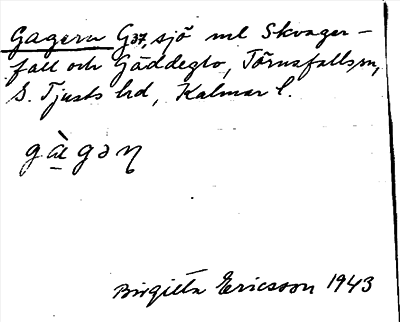 Gagern G37, sjö ml Skvager-
fall och Gäddeglo, Törnsfallsm,
S. Tjusts hd, Kalmar l.
gàgǝn
Birgitta Ericsson 1943